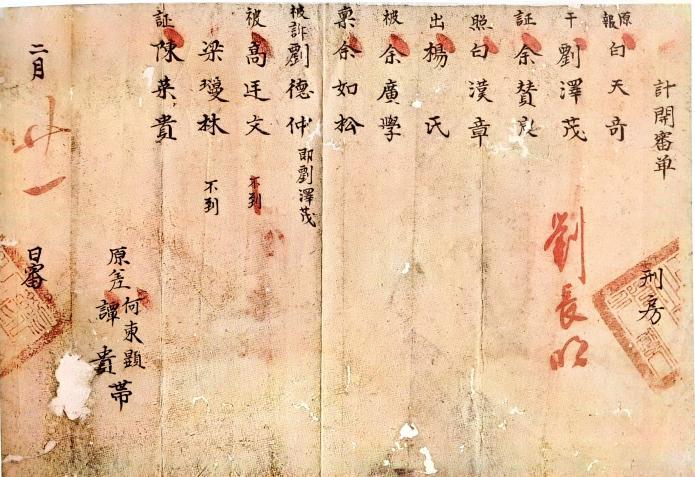 計開審单
刑房
原報白天奇
干劉澤茂
証余贊
照白漠章
出楊氏
被余廣學
稟余如松
被訴劉德仲即劉澤茂
被高廷文不到
梁瓊林不到
証陳英貴
劉長明
原差何東顯
譚貴
帶
二月廿一日審